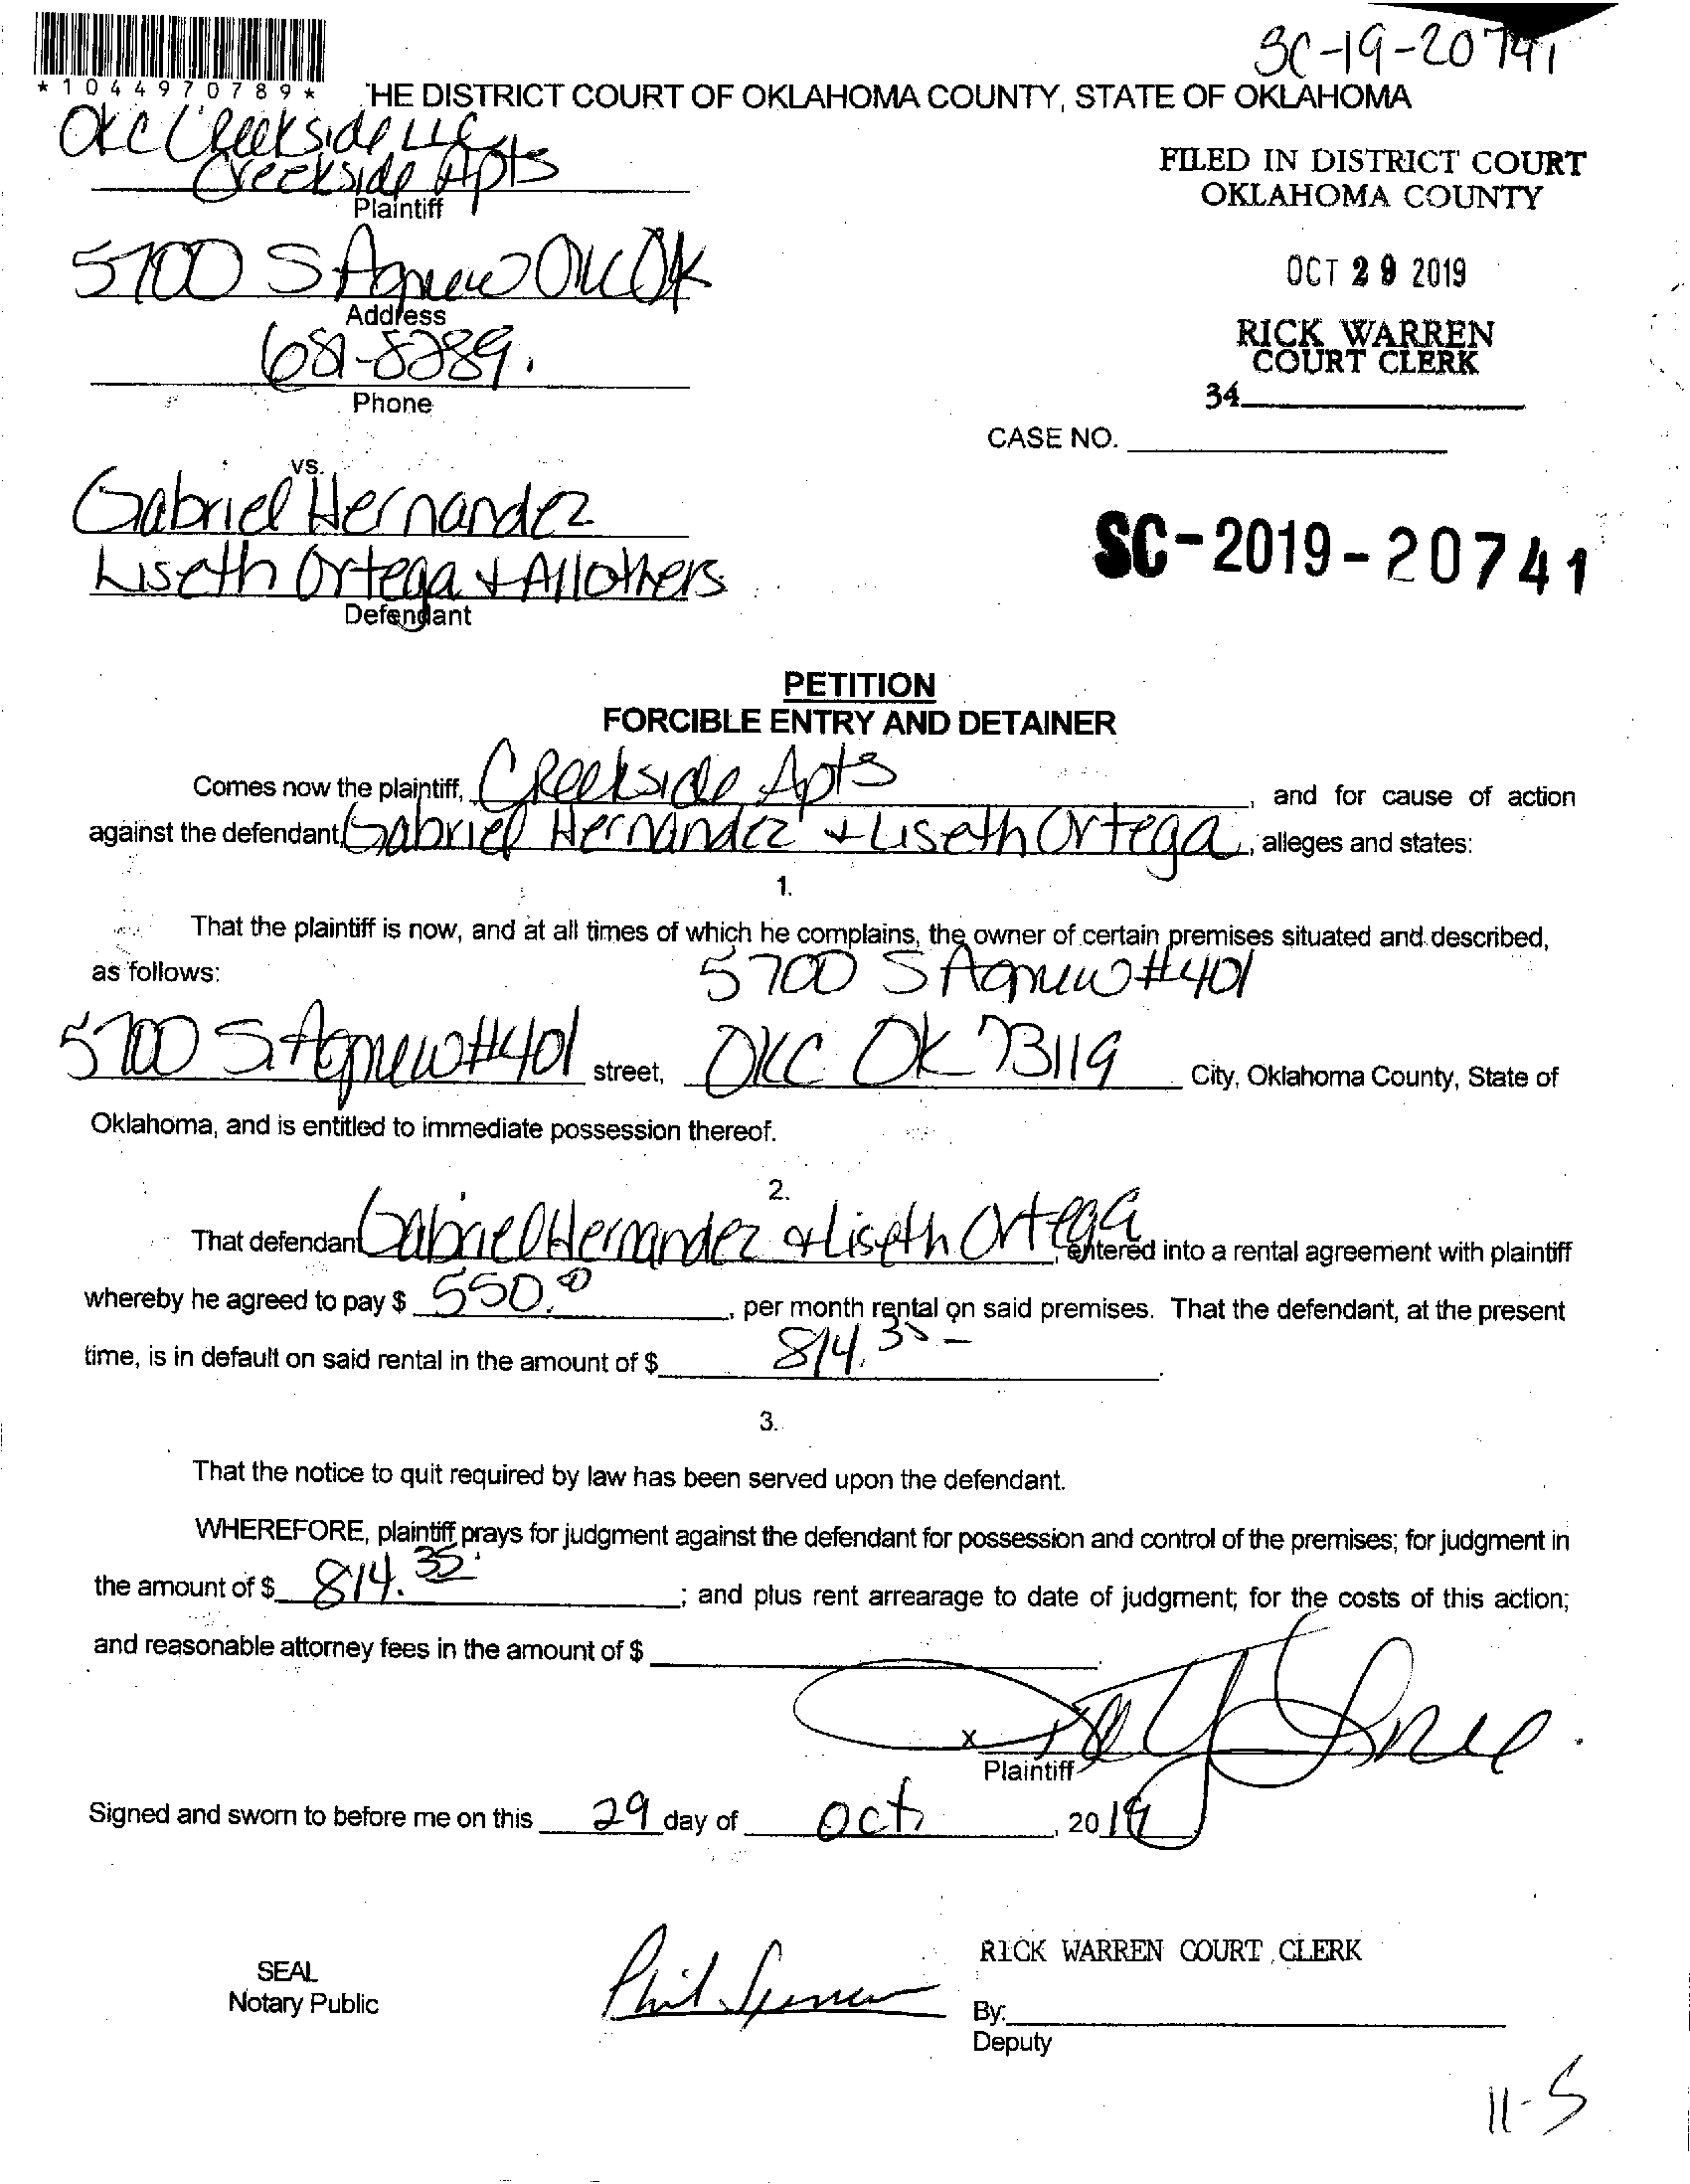 SC-19-20741
*1044970789*
HE DISTRICT COURT OF OKLAHOMA COUNTY, STATE OF OKLAHOMA
OKC Creekside LLC
Creekside Apts
Plaintiff
FILED IN DISTRICT COURT
OKLAHOMA COUNTY
5700 S Agnew OKC OK
Address
OCT 29 2019
681-8289.
Phone
RICK WARREN
COURT CLERK
34
CASE NO.
vs.
Gabriel Hernandez
Liseth Ortega + All others
Defendant
SC-2019-20741
PETITION
FORCIBLE ENTRY AND DETAINER
Comes now the plaintiff, Creekside Apts, and for cause of action
against the defendant, Gabriel Hernandez + Liseth Ortega, alleges and states:
1.
That the plaintiff is now, and at all times of which he complains, the owner of certain premises situated and described,
as follows: 5700 S Agnew #401
5700 S. Agnew #401 street, OKC OK 73119 City, Oklahoma County, State of
Oklahoma, and is entitled to immediate possession thereof.
2.
That defendant Gabriel Hernandez + Liseth Ortega, entered into a rental agreement with plaintiff
whereby he agreed to pay $ 550.0, per month rental on said premises. That the defendant, at the present
time, is in default on said rental in the amount of $ 814.35-.
3.
That the notice to quit required by law has been served upon the defendant.
WHEREFORE, plaintiff prays for judgment against the defendant for possession and control of the premises; for judgment in
the amount of $ 814.35; and plus rent arrearage to date of judgment; for the costs of this action;
and reasonable attorney fees in the amount of $
x
Plaintiff
Signed and sworn to before me on this 29 day of Oct, 2019
SEAL
Notary Public
Phil Spencer
RICK WARREN COURT CLERK
By:
Deputy
11-5